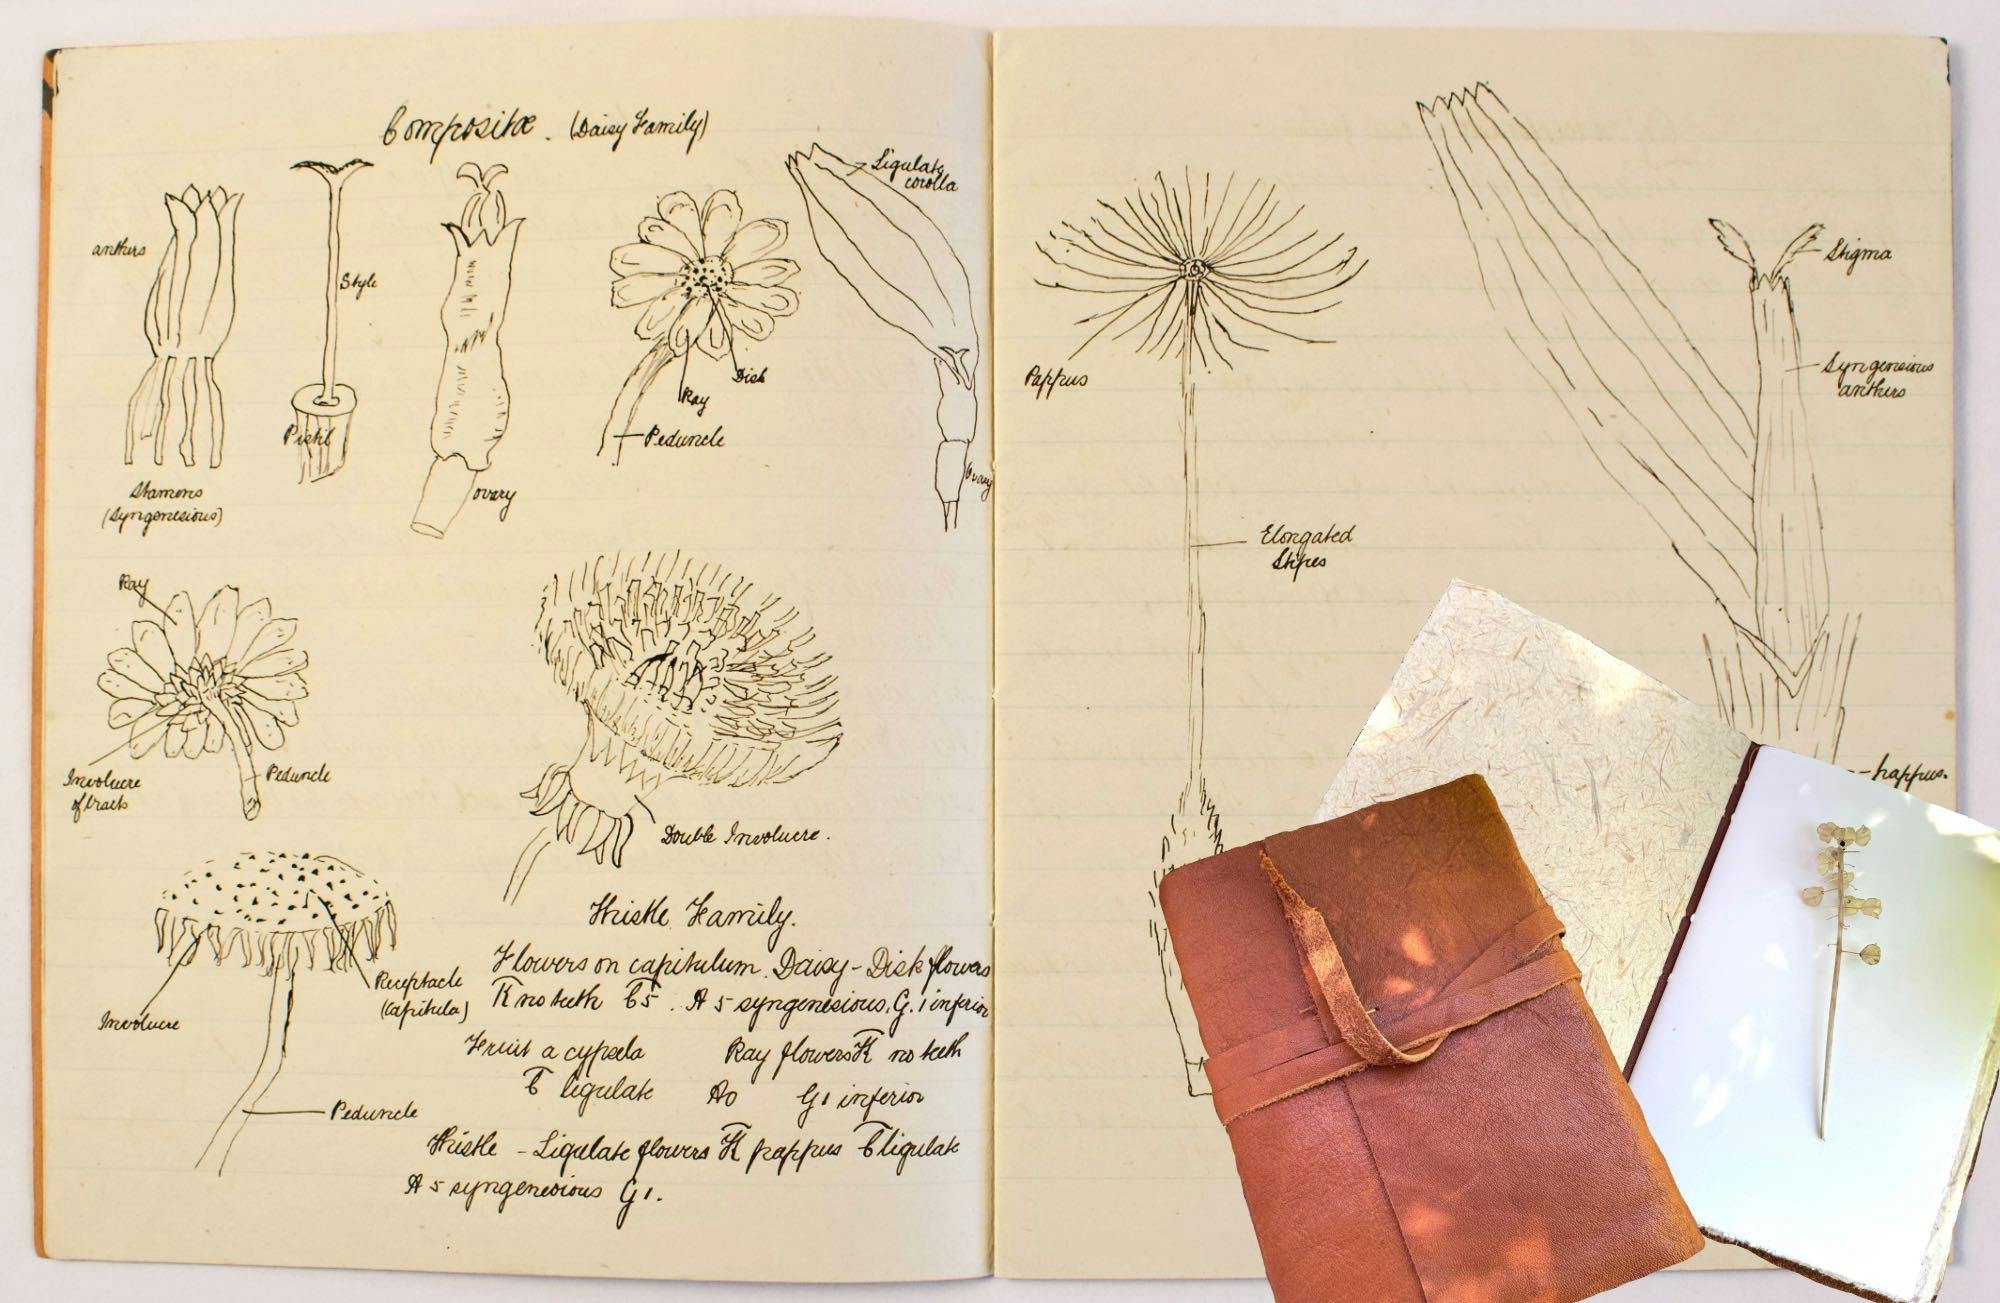 Compositæ. (Daisy Family)
anthers
Style
Pistil
Stamens
(syngenesious)
ovary
Disk
Ray
Peduncle
Ligulate
corolla
Ovary
Ray
Involucre
of bracts
Peduncle
Double Involucre.
Receptacle
(Capitula)
Involucre
Peduncle
Thistle Family.
Flowers on capitulum. Daisy - Disk flowers
K no teeth C5. A 5 syngenesious. G. 1 inferior
Fruit a cypsela Ray flowers K no teeth
C ligulate A0 G1 inferior
Thistle - Ligulate flowers K pappus C ligulate
A 5 syngenesious G1.
Pappus
Elongated
Stipes
Stigma
Syngenesious
anthers
pappus.